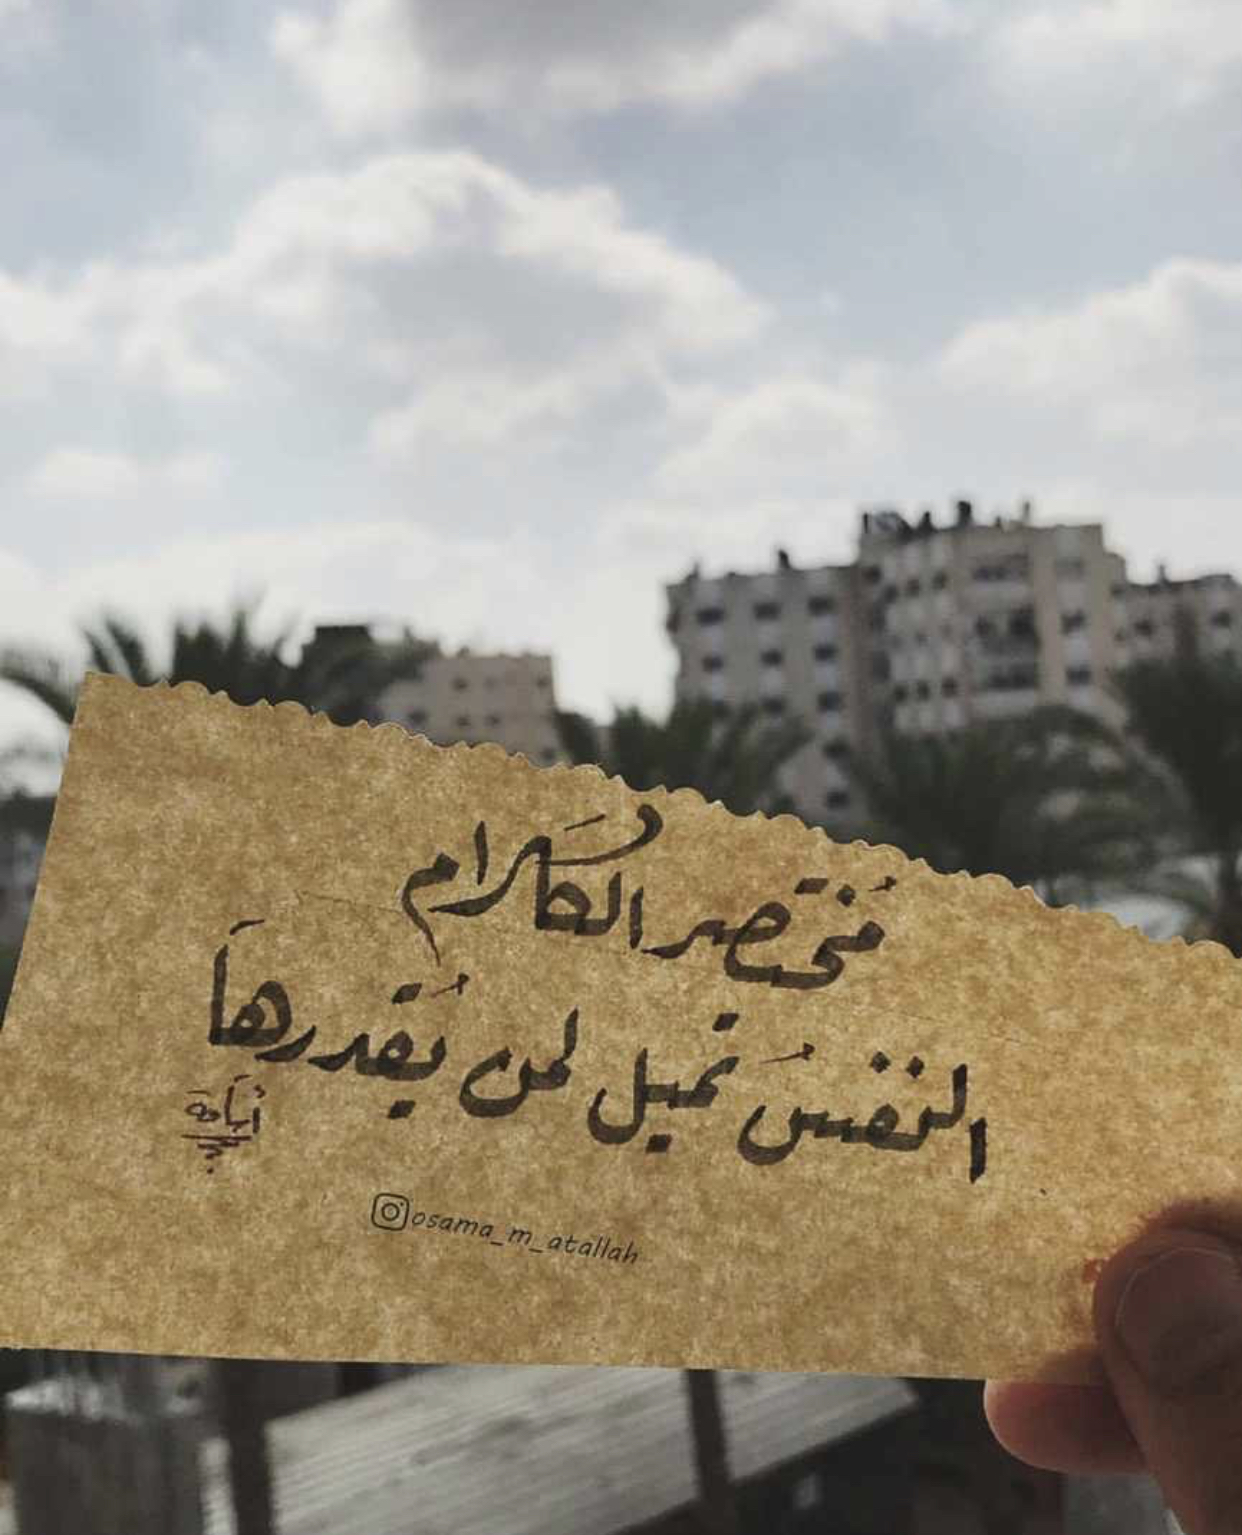 مُختصر الكَلام
النفسُ تميل لمن يُقدرهاَ
أسامة
osama_m_atallah